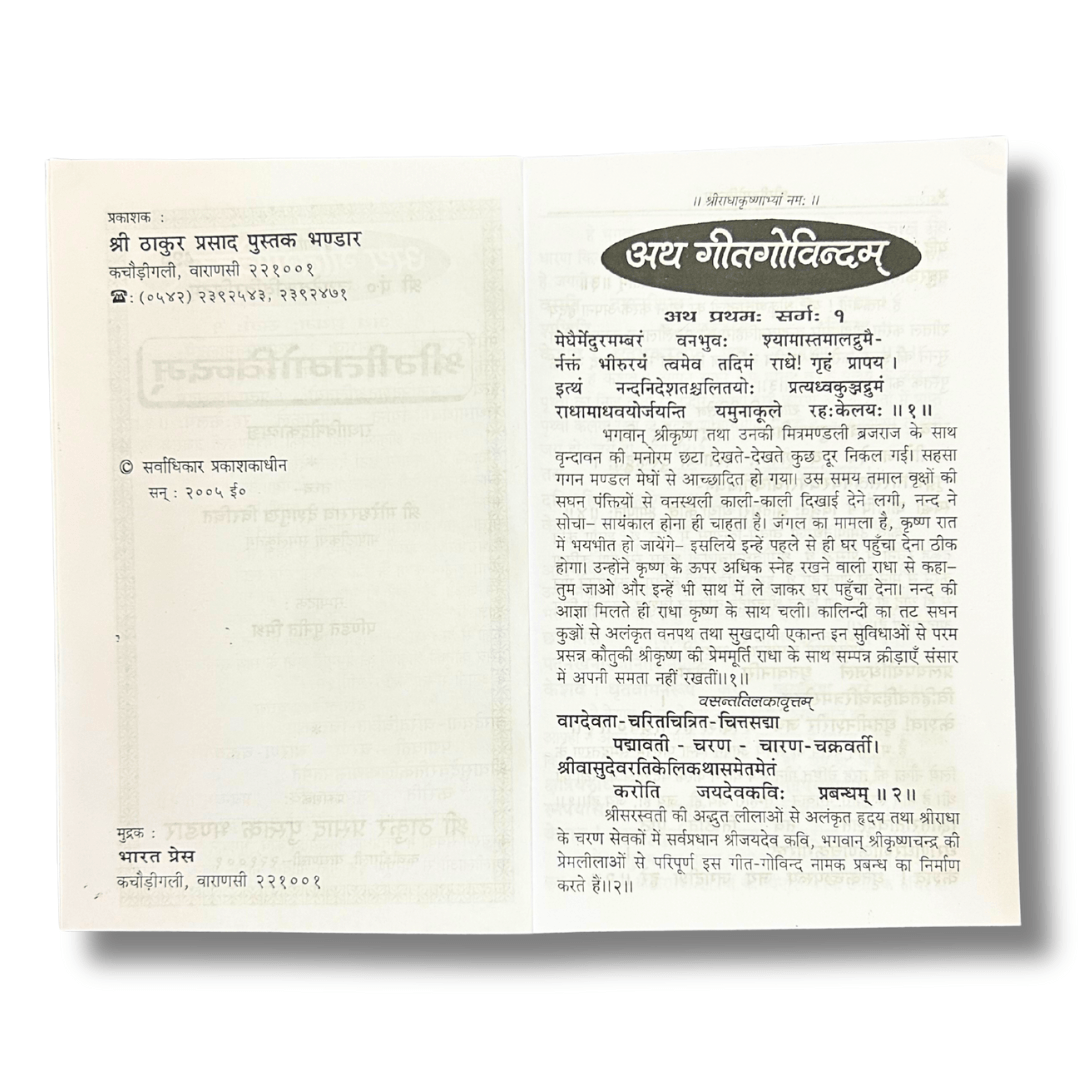 प्रकाशक :
श्री ठाकुर प्रसाद पुस्तक भण्डार
कचौड़ीगली, वाराणसी २२१००१
☎: (०५४२) २३९२५४३, २३९२४७१
© सर्वाधिकार प्रकाशकाधीन
सन् : २००५ ई०
मुद्रक :
भारत प्रेस
कचौड़ीगली, वाराणसी २२१००१
॥ श्रीराधाकृष्णाभ्यां नमः ॥
अथ गीतगोविन्दम्
अथ प्रथमः सर्गः १
मेघैर्मेदुरमम्बरं वनभुवः श्यामास्तमालद्रुमै-
र्नक्तं भीरुरयं त्वमेव तदिमं राधे! गृहं प्रापय ।
इत्थं नन्दनिदेशतश्चलितयोः प्रत्यध्वकुञ्जद्रुमं
राधामाधवयोर्जयन्ति यमुनाकूले रहःकेलयः ॥१॥
भगवान् श्रीकृष्ण तथा उनकी मित्रमण्डली ब्रजराज के साथ
वृन्दावन की मनोरम छटा देखते-देखते कुछ दूर निकल गई। सहसा
गगन मण्डल मेघों से आच्छादित हो गया। उस समय तमाल वृक्षों की
सघन पंक्तियों से वनस्थली काली-काली दिखाई देने लगी, नन्द ने
सोचा– सायंकाल होना ही चाहता है। जंगल का मामला है, कृष्ण रात
में भयभीत हो जायेंगे– इसलिये इन्हें पहले से ही घर पहुँचा देना ठीक
होगा। उन्होंने कृष्ण के ऊपर अधिक स्नेह रखने वाली राधा से कहा–
तुम जाओ और इन्हें भी साथ में ले जाकर घर पहुँचा देना। नन्द की
आज्ञा मिलते ही राधा कृष्ण के साथ चली। कालिन्दी का तट सघन
कुञ्जों से अलंकृत वनपथ तथा सुखदायी एकान्त इन सुविधाओं से परम
प्रसन्न कौतुकी श्रीकृष्ण की प्रेममूर्ति राधा के साथ सम्पन्न क्रीड़ाएँ संसार
में अपनी समता नहीं रखतीं॥१॥
वसन्ततिलकावृत्तम्
वाग्देवता-चरितचित्रित-चित्तसद्मा
पद्मावती - चरण - चारण-चक्रवर्ती।
श्रीवासुदेवरतिकेलिकथासमेतमेतं
करोति जयदेवकविः प्रबन्धम् ॥२॥
श्रीसरस्वती की अद्भुत लीलाओं से अलंकृत हृदय तथा श्रीराधा
के चरण सेवकों में सर्वप्रधान श्रीजयदेव कवि, भगवान् श्रीकृष्णचन्द्र की
प्रेमलीलाओं से परिपूर्ण इस गीत-गोविन्द नामक प्रबन्ध का निर्माण
करते हैं॥२॥